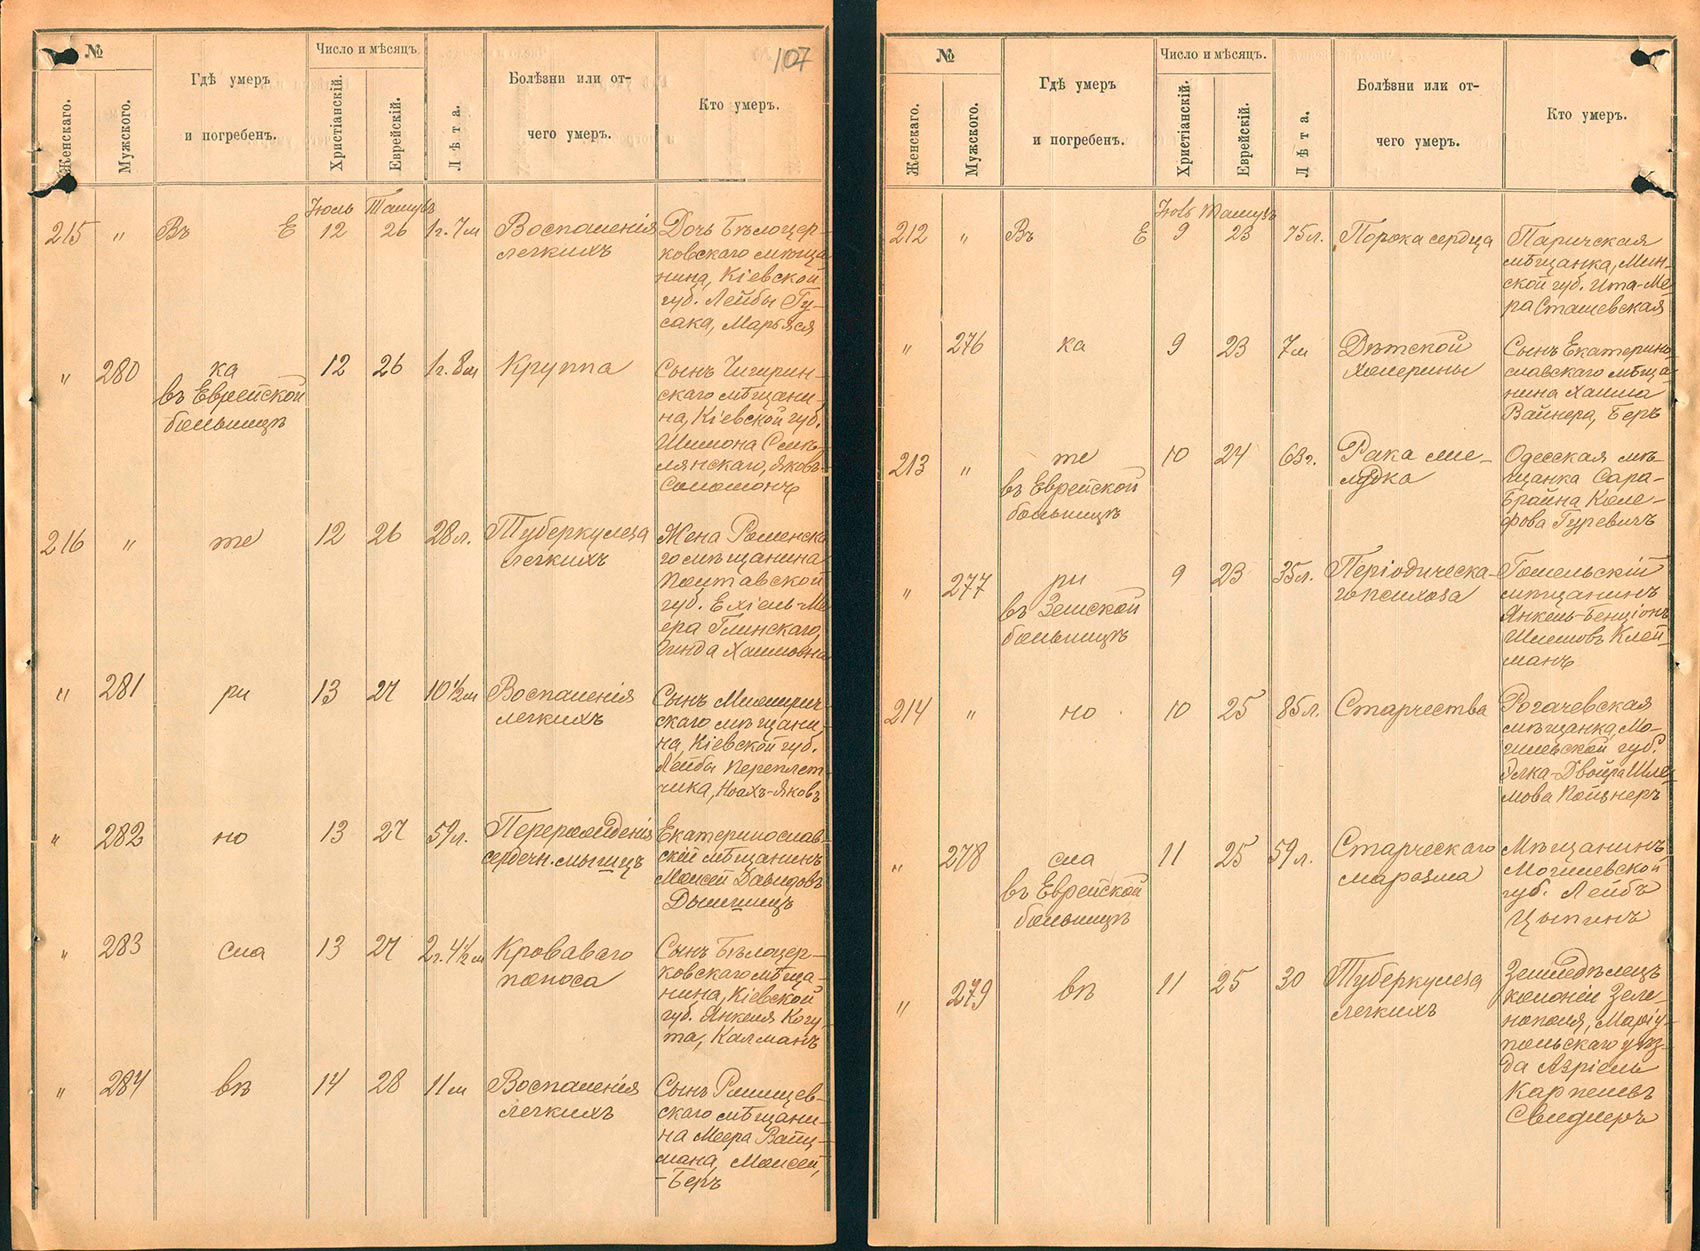 107
№
Женскаго.
Мужскаго.
Гдѣ умеръ
и погребенъ.
Число и мѣсяцъ.
Христіанскій.
Еврейскій.
Лѣта.
Болѣзни или от-
чего умеръ.
Кто умеръ.
Іюль Тамузъ
215 " Въ Е 12 26 1г. 7м Воспаленія
легкихъ
Дочь Бѣлоцер-
ковскаго мѣща
нина, Кіевской
губ. Лейбы Гу-
сака, Марьяся
" 280 ка 12 26 1г. 8м Круппа
въ Еврейской
больницѣ
Сынъ Чигирин-
скаго мѣщани-
на, Кіевской губ.
Шимона
Яковъ-
Соломонъ
216 " те 12 26 28л. Туберкулеза
легкихъ
Жена Роменска
го мѣщанина
Полтавской
губ. Ехіель-Ме
ера Глинскаго,
Гинда Хаимовна
" 281 ри 13 27 10½м Воспаленія
легкихъ
Сынъ
скаго мѣщани-
на, Кіевской губ.
Лейбы Переплет-
чика, Ноахъ-Яковъ
" 282 но 13 27 59л. Перерожденія
сердечн. мышцъ
Екатеринослав-
скій мѣщанинъ
Моисей Давидовъ
Дымшицъ
" 283 сла 13 27 2г. 4½м Кроваваго
поноса
Сынъ Бѣлоцер-
ковскаго мѣща-
нина, Кіевской
губ. Янкеля Когу-
та, Калманъ
" 284 вѣ 14 28 11м Воспаленія
легкихъ
Сынъ Ржищев-
скаго мѣщани-
на Меера Вайц-
мана, Моисей,
-Беръ
№
Женскаго.
Мужскаго.
Гдѣ умеръ
и погребенъ.
Число и мѣсяцъ.
Христіанскій.
Еврейскій.
Лѣта.
Болѣзни или от-
чего умеръ.
Кто умеръ.
Іюль Тамузъ
212 " Въ Е 9 23 75л. Порока сердца
Паричская
мѣщанка, Мин-
ской губ. Ита-Ме
ра Сташевская
" 276 ка 9 23 7м Дѣтской
холерины
Сынъ Екатерино
славскаго мѣща-
нина Хаима
Вайнера, Беръ
213 " те 10 24 63г. Рака же-
лудка
въ Еврейской
больницѣ
Одесская мѣ-
щанка Сара-
Брайна
Гуревичъ
" 277 ри 9 23 35л. Періодическа-
го психоза
въ Земской
больницѣ
Гомельскій
мѣщанинъ
Янкель-Бенціонъ
Шлемовъ Клей-
манъ
214 " но 10 25 85л. Старчества
Рогачевская
мѣщанка, Мо-
гилевской губ.
Элка-Двойра Шле-
мова Пойзнеръ
" 278 сла 11 25 59л. Старческаго
маразма
въ Еврейской
больницѣ
Мѣщанинъ
Могилевской
губ. Лейбъ
Цыпинъ
" 279 вѣ 11 25 30 Туберкулеза
легкихъ
Земледѣлецъ
колоніи Зеле-
нополя, Маріу-
польскаго уѣз-
да Азріель
Карпелевъ
Свидлеръ